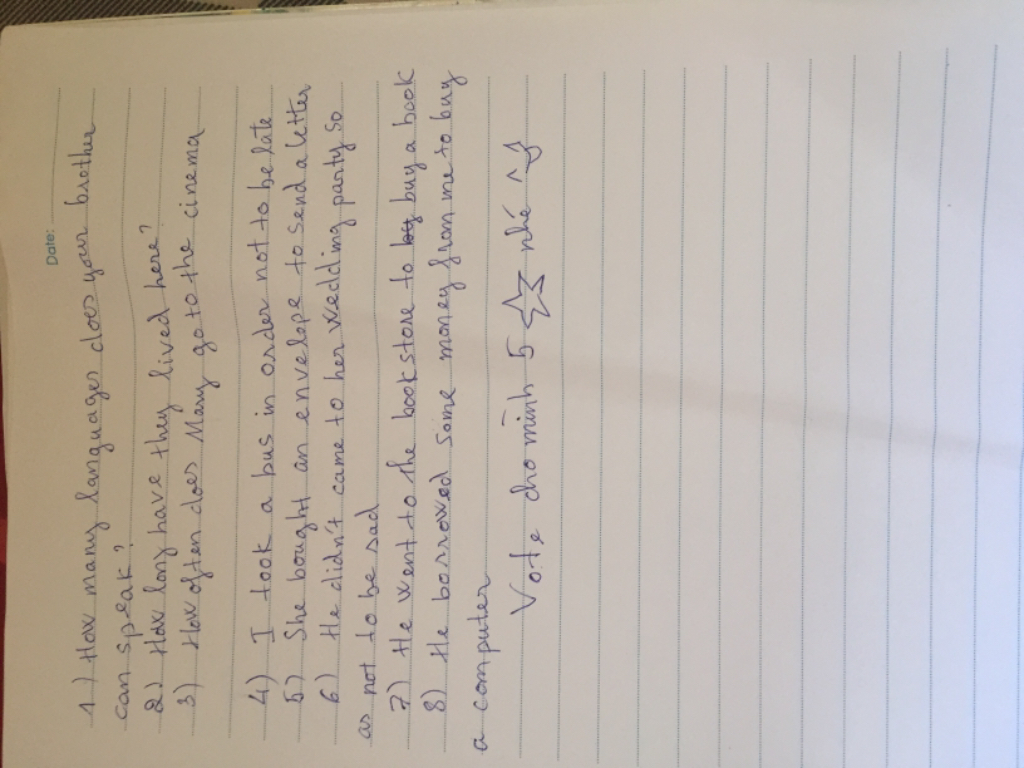 Date:
1) How many languages does your brother
can speak?
2) How long have they lived here?
3) How often does Mary go to the cinema
4) I took a bus in order not to be late
5) She bought an envelope to send a letter
6) He didn't came to her wedding party so
as not to be sad
7) He went to the bookstore to by buy a book
8) He borrowed some money from me to buy
a computer
Vote cho mình 5 ☆ nhé ^^